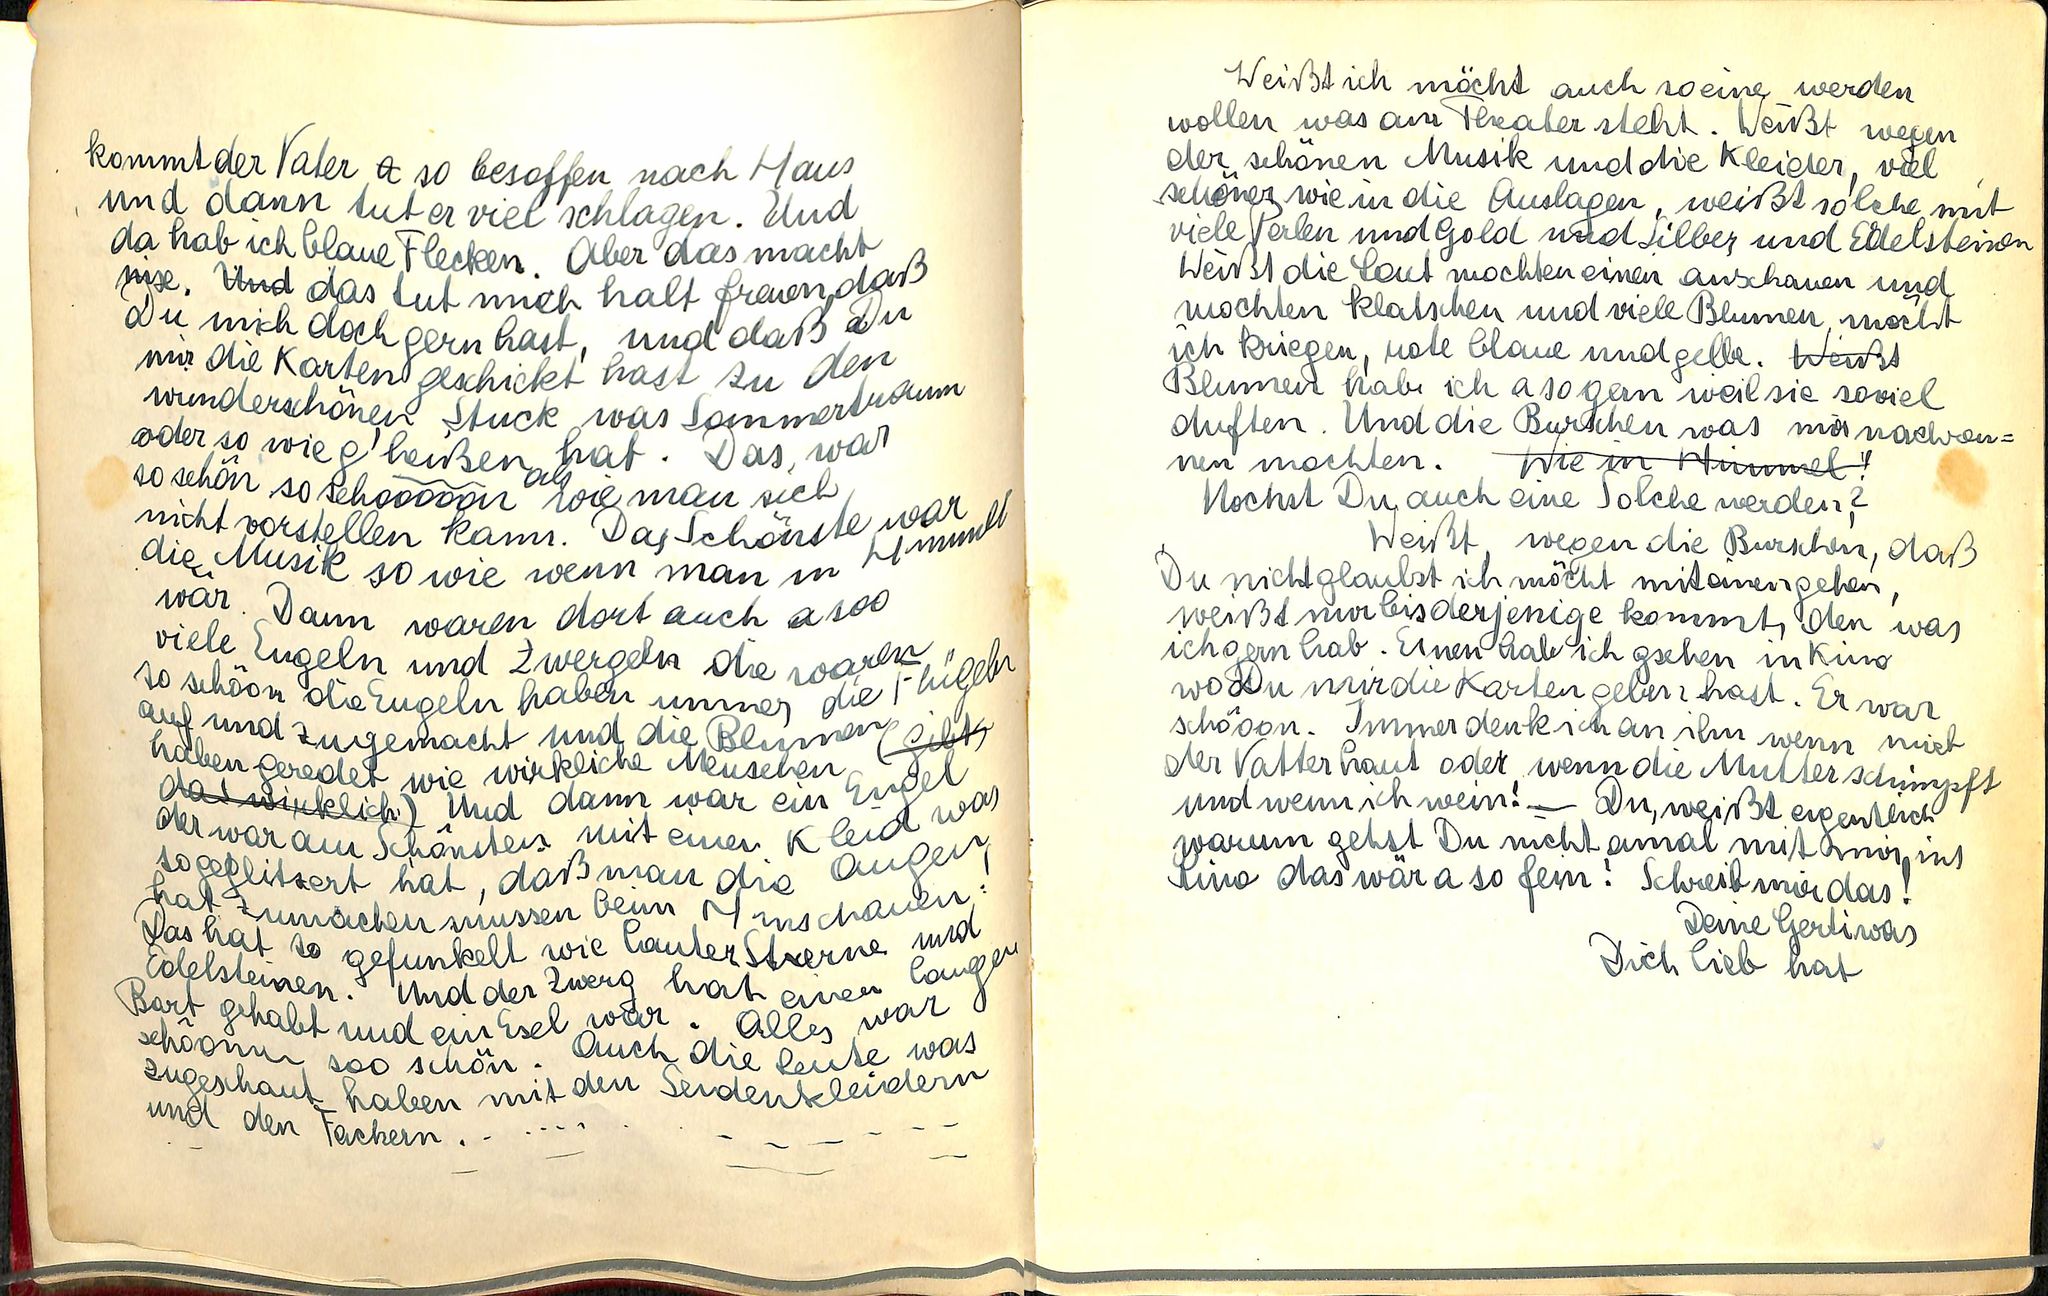 kommt der Vater a so besoffen nach Haus
und dann tut er viel schlagen. Und
da hab ich blaue Flecken. Aber das macht
nixe. Und das tut mich halt freuen, daß
Du mich doch gern hast, und daß Du
mir die Karten geschickt hast zu den
wunderschönen Stuck was Sommertraum
oder so wie g'heißen hat. Das war
so schön so schooooon als wie man sich
nicht vorstellen kann. Das Schönste war
die Musik so wie wenn man in Himmel
wär. Dann waren dort auch a soo
viele Engeln und Zwergeln die waren
so schöön die Engeln haben immer die Flügeln
auf und zugemacht und die Blumen (gibts
haben geredet wie wirkliche Menschen
das wirklich) Und dann war ein Engel
der war am Schönsten mit einen Kleid was
so geglitzert hat, daß man die Augen
hat zumachen mussen beim Hinschauen!
Das hat so gefunkelt wie lauter Sterne und
Edelsteinen. Und der Zwerg hat einen langen
Bart gehabt und ein Esel war. Alles war
schöönn soo schön. Auch die Leute was
zugeschaut haben mit den Seidenkleidern
und den Fächern.
Weißt ich möcht auch so eine werden
wollen was am Theater steht. Weißt wegen
der schönen Musik und die Kleider, viel
schöner wie in die Auslagen, weißt solche mit
viele Perlen und Gold und Silber und Edelsteinen
Weißt die Leut mochten einen anschauen und
mochten klatschen und viele Blumen möcht
ich kriegen, rote blaue und gelbe. Weißt
Blumen habe ich a so gern weil sie soviel
duften. Und die Burschen was mir nachren=
nen mochten. Wie in Himmel!
Mochst Du auch eine Solche werden?
Weißt, wegen die Burschen, daß
Du nicht glaubst ich möcht mit einen gehen,
weißt nur bis derjenige kommt, den was
ich gern hab. Einen hab ich gsehen in Kino
wo Du mir die Karten geben hast. Er war
schöoon. Immer denk ich an ihm wenn mich
der Vatter haut oder wenn die Mutter schimpft
und wenn ich wein! — Du, weißt eigentlich
warum gehst Du nicht amal mit mir ins
Kino das wär a so fein! Schreib mir das!
Deine Gerti was
Dich lieb hat